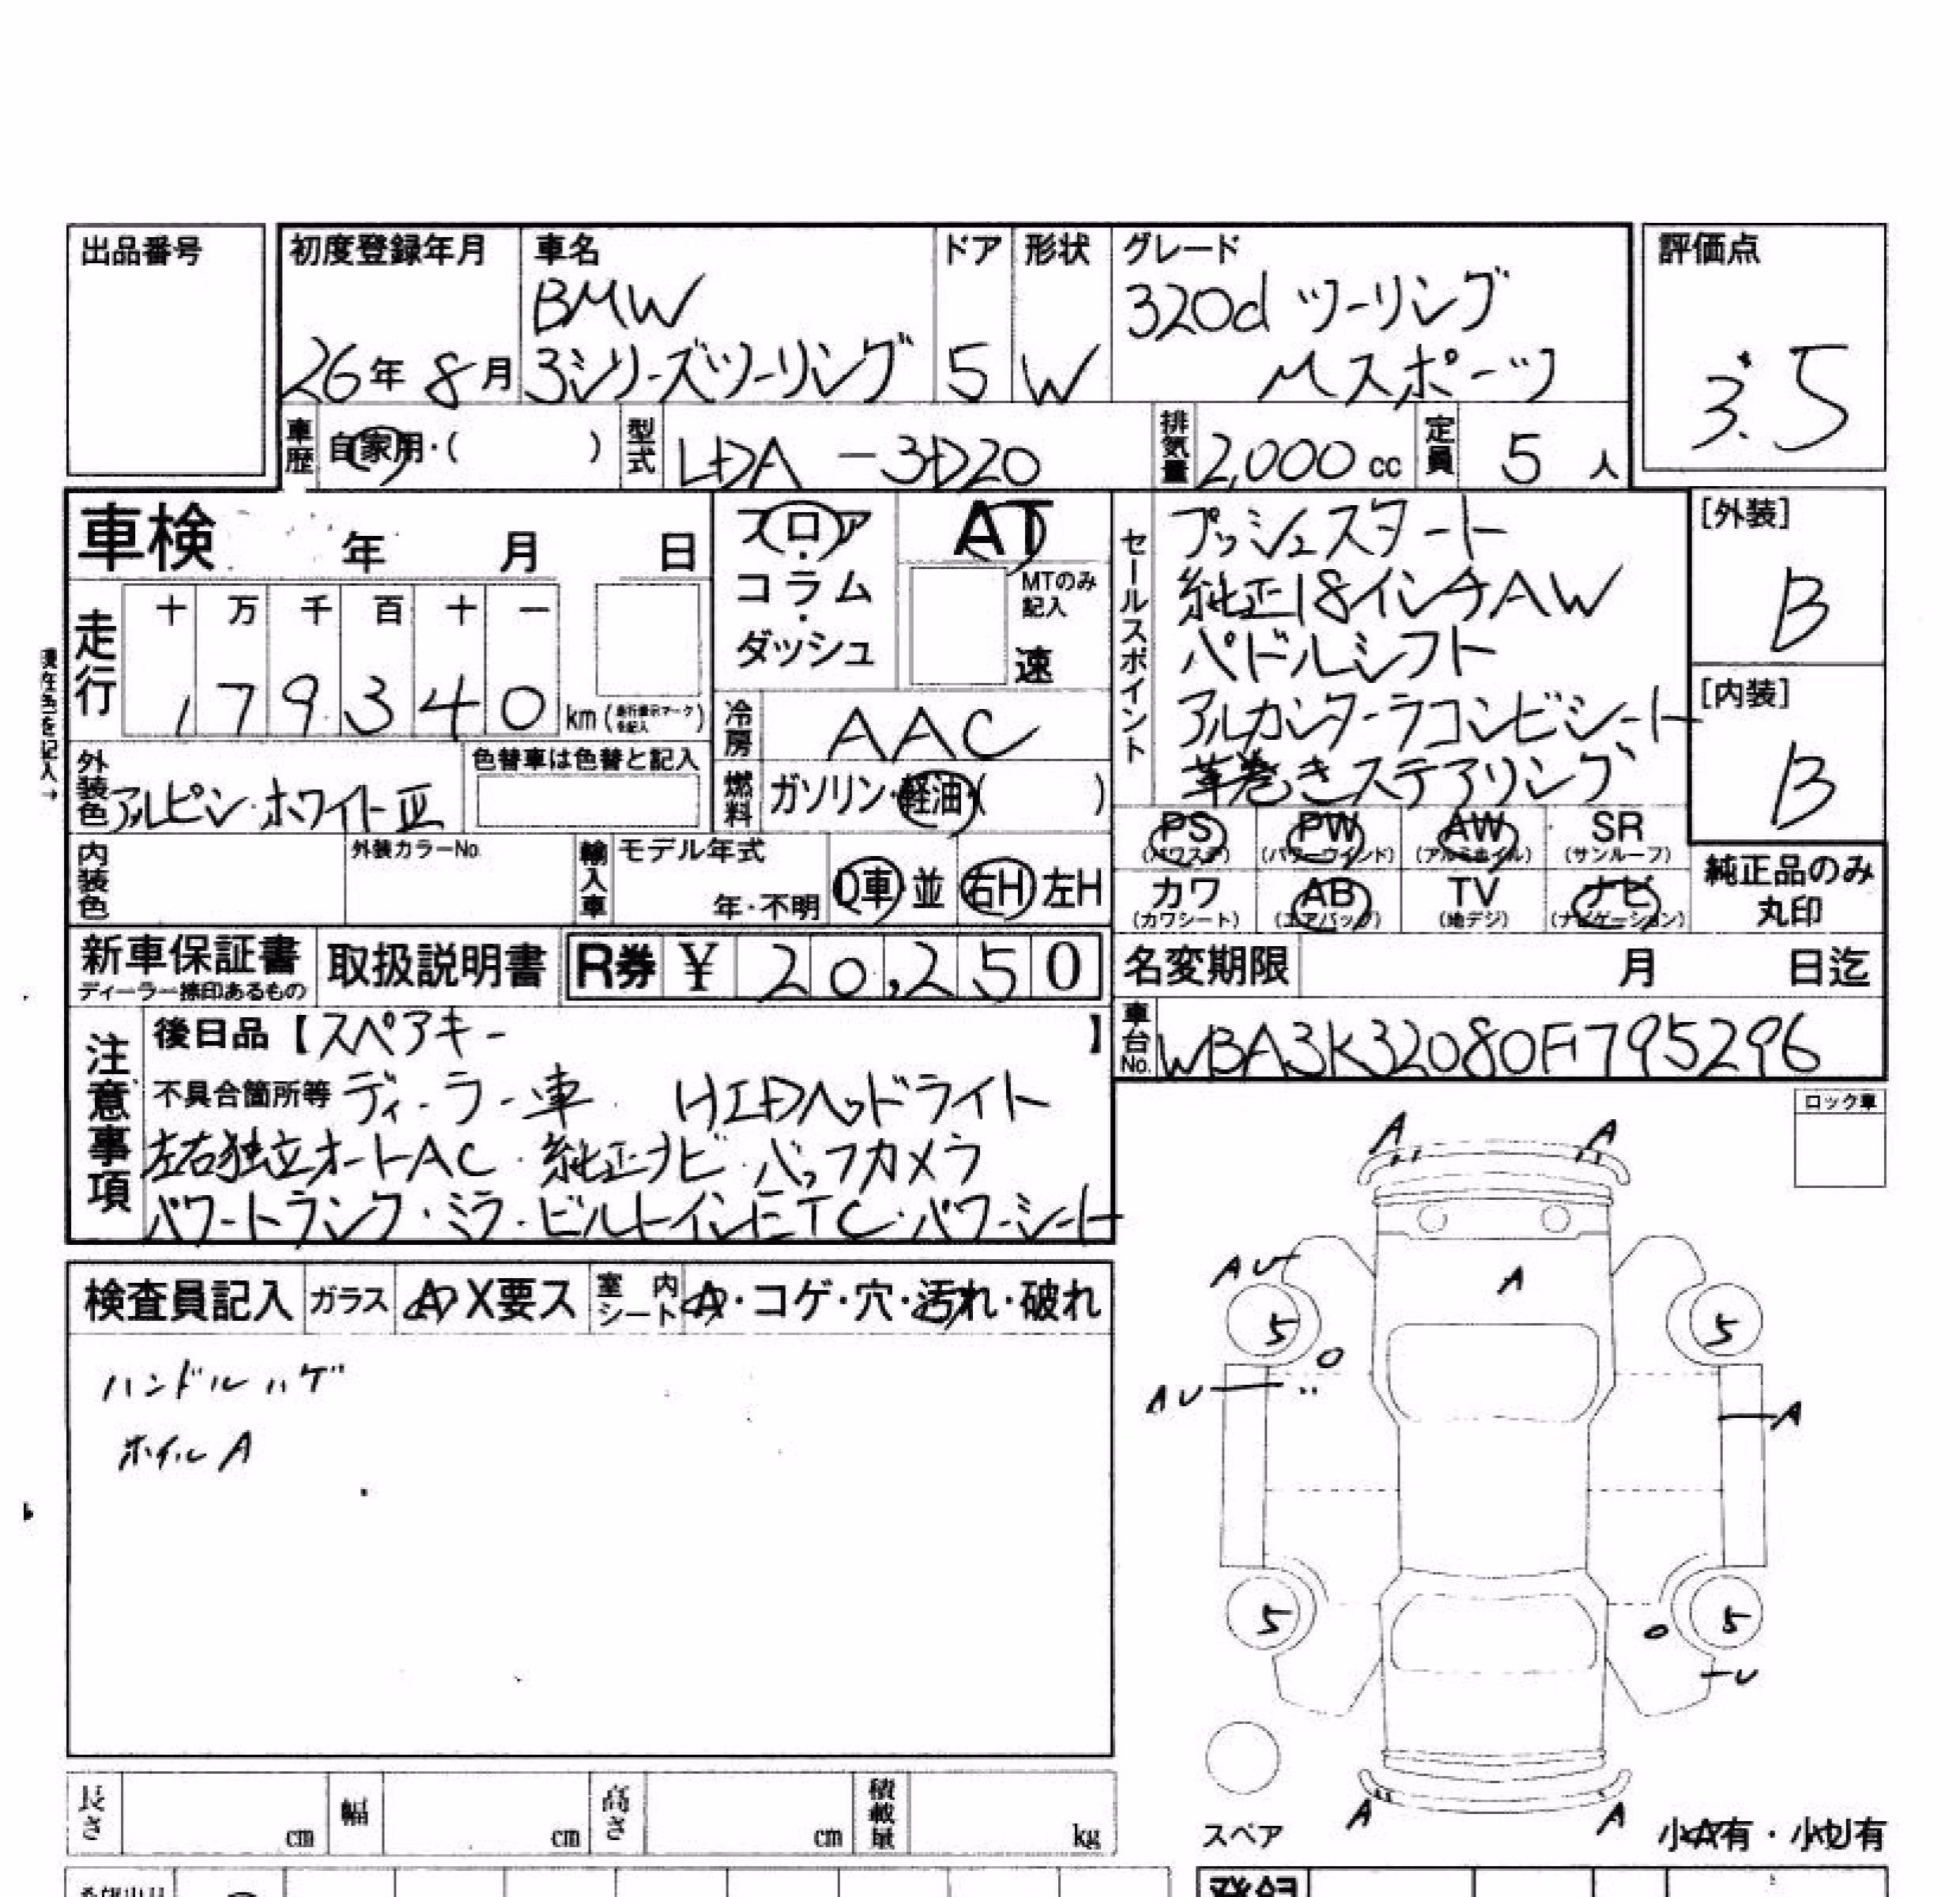 出品番号
初度登録年月 車名 ドア 形状 グレード 評価点
BMW 320d ツーリング
26年 8月 3シリーズツーリング 5 W Mスポーツ 3.5
車歴 自家用・( ) 型式 LDA-3D20 排気量 2,000 cc 定員 5 人
車検 年 月 日
フロア・コラム・ダッシュ AT
MTのみ記入 速
セールスポイント
プッシュスタート
純正18インチAW
パドルシフト
アルカンターラコンビシート
革巻きステアリング
[外装] B
[内装] B
走行 十 万 千 百 十 一
179340 km (走行表示マークを記入)
冷房 AAC
燃料 ガソリン・軽油・( )
外装色 アルピンホワイトⅢ 色替車は色替と記入
PS (パワステ) PW (パワーウインド) AW (アルミホイル) SR (サンルーフ)
カワ (カワシート) AB (エアバッグ) TV (地デジ) ナビ (ナビゲーション)
純正品のみ丸印
内装色 外装カラーNo. 輸入車 モデル年式 年・不明 D車・並 右H 左H
新車保証書 ディーラー捺印あるもの 取扱説明書 R券 ¥ 20,250
名変期限 月 日迄
車台No. WBA3K32080F795296
注意事項
後日品【スペアキー】
不具合箇所等 ディーラー車 HIDヘッドライト
左右独立オートAC・純正ナビ・バックカメラ
パワートランク・ミラー・ビルトインETC・パワーシート
ロック車
検査員記入 ガラス A X要ス 室内シート A・コゲ・穴・汚れ・破れ
ハンドルハゲ
ホイルA
A A
AU A
5 5
AU A
5 5
U
A A
スペア 小A有・小U有
長さ cm 幅 cm 高さ cm 積載量 kg
登録